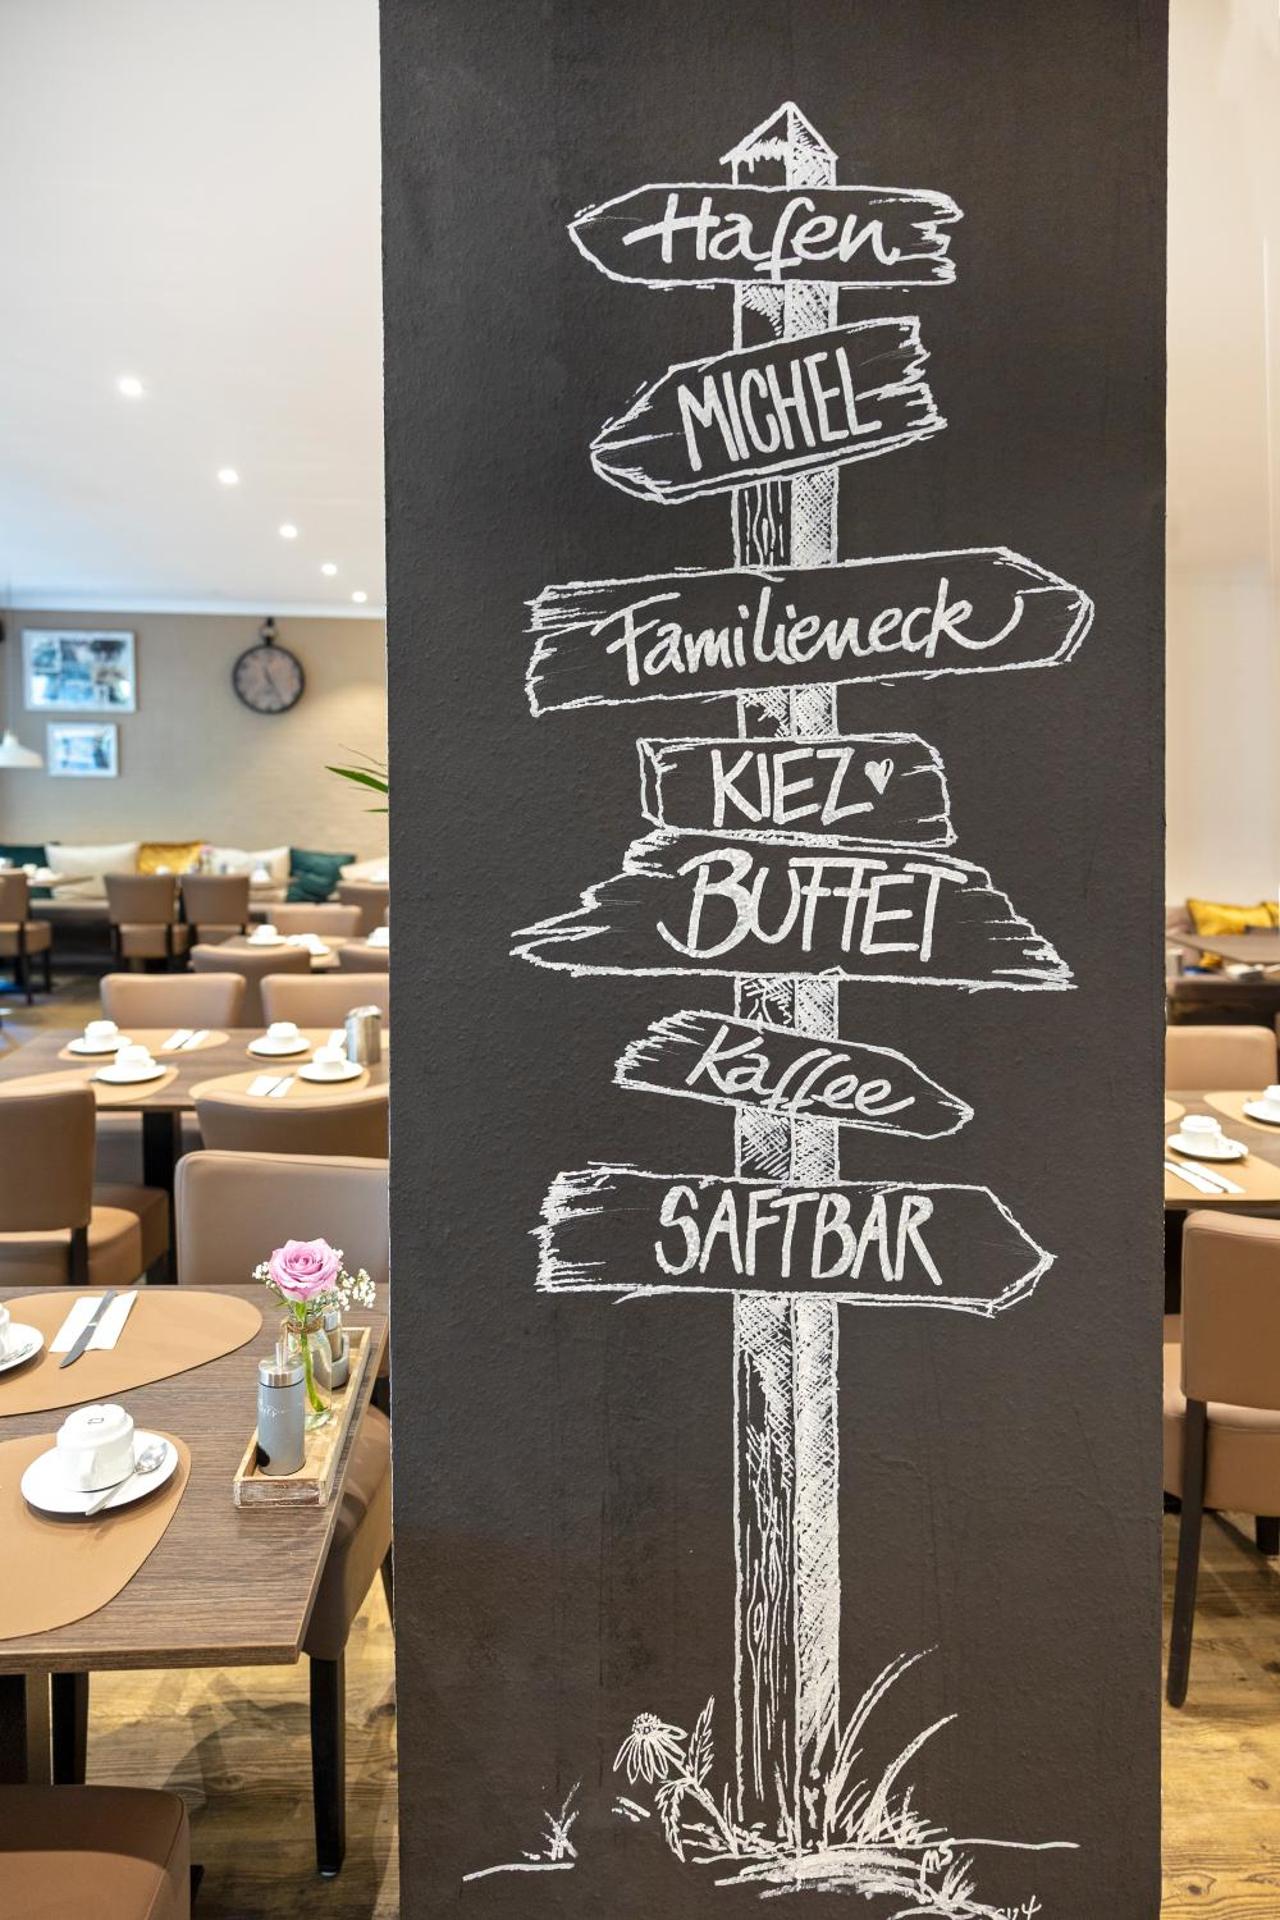 Hafen
MICHEL
Familieneck
KIEZ
BUFFET
Kaffee
SAFTBAR
MS